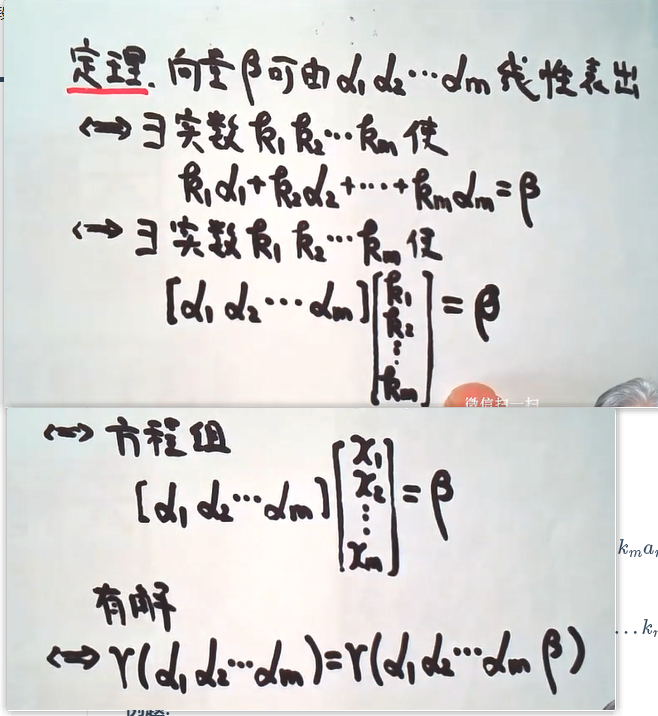 定理. 向量β可由α₁ α₂ ⋯ αₘ 线性表出
⟺ ∃ 实数 k₁ k₂ ⋯ kₘ 使
k₁α₁+k₂α₂+⋯+kₘαₘ=β
⟺ ∃ 实数 k₁ k₂ ⋯ kₘ 使
[α₁ α₂ ⋯ αₘ][k₁ k₂ ⋮ kₘ] = β
微信扫一扫
⟺ 方程组
[α₁ α₂ ⋯ αₘ][x₁ x₂ ⋮ xₘ] = β
有解
⟺ r(α₁ α₂ ⋯ αₘ)=r(α₁ α₂ ⋯ αₘ β)